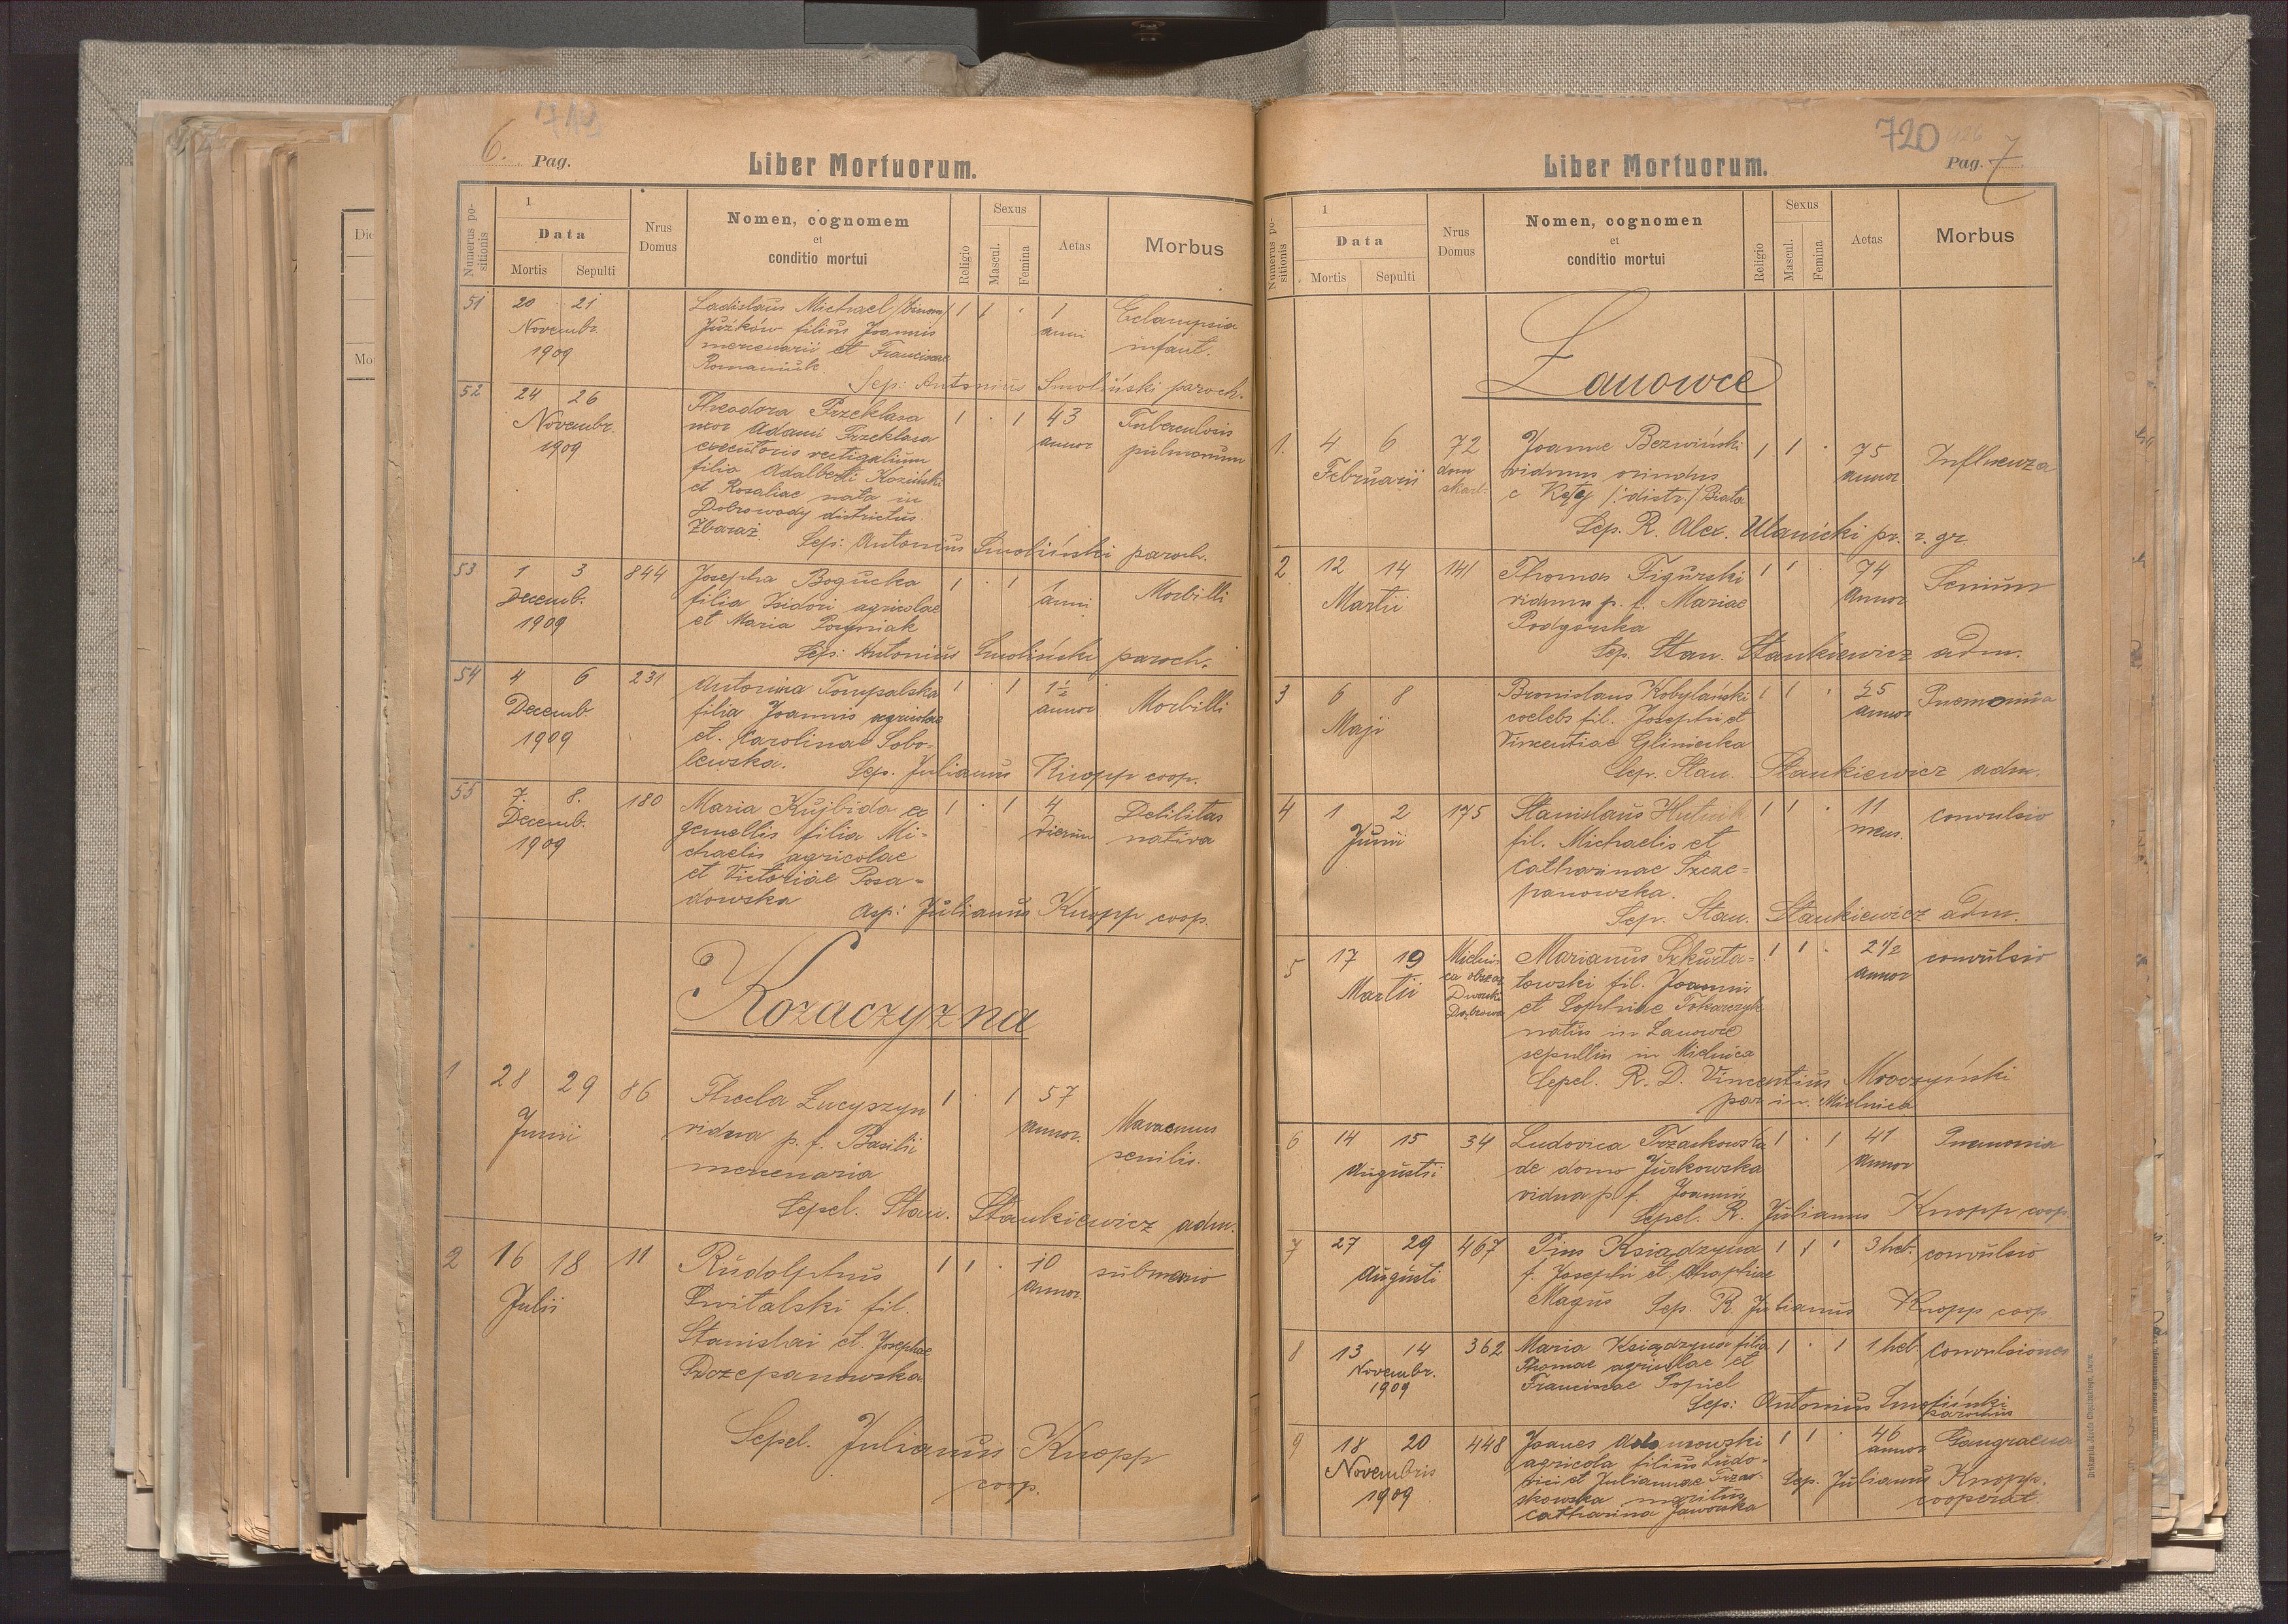 6. Pag.
Liber Mortuorum.
Numerus positionis
1
Data
Mortis Sepulti
Nrus Domus
Nomen, cognomem
et
conditio mortui
Religio
Sexus
Mascul. Femina
Aetas
Morbus
51 20 21 Ladislaus Michael 1 1 · 1 Eclampsia
Novembr. Juźków filius Joannis anni infant.
1909 mercenarii et Franciscae
Romaniuk
Sep: Antonius Smoliński paroch.
52 24 26 Theodora Przeklasa 1 · 1 43 Tuberculosis
Novembr. uxor Adami Przeklasa annor pulmonum
1909 executoris vectigalium
filia Adalberti Koziński
et Rosaliae nata in
Dobrowody districtus
Zbaraż.
Sep: Antonius Smoliński paroch.
53 1 3 844 Josepha Bogucka 1 · 1 1 Morbilli
Decemb. filia Isidori agricolae anni
1909 et Maria
Sep: Antonius Smoliński paroch.
54 4 6 231 Antonina Tompalska 1 · 1 1½ Morbilli
Decemb. filia Joannis agricolae annor
1909 et Carolinae Sobo-
lewska.
Sep. Julianus Knopp coop.
55 7. 8. 180 Maria Kujbida ex 1 · 1 4 Debilitas
Decemb. gemellis filia Mi- dierum nativa
1909 chaelis agricolae
et Victoriae Posa-
dowska
Asp: Julianus Knopp coop.
Kozaczyzna
1 28 29 86 Thecla Łucyszyn 1 · 1 57 Marasmus
Junii vidua p. f. Basilii annor. senilis.
mercenaria
Sepel. Stan. Stankiewicz adm.
2 16 18 11 Rudolphus 1 1 · 10 submersio
Julii Świtalski fil. annor.
Stanislai et Josephae
Szczepanowska
Sepel. Julianus Knopp
coop.
720
Pag. 7
Liber Mortuorum.
Numerus positionis
1
Data
Mortis Sepulti
Nrus Domus
Nomen, cognomen
et
conditio mortui
Religio
Sexus
Mascul. Femina
Aetas
Morbus
Łanowce
1. 4 6 72 Joannes Bezwiński 1 1 · 75 Influenza
Februarii dom viduus oriundus annor
skarb. e Kęty /:distr:/ Biała
Sep. R. Alex. Ulanicki pr. r. gr.
2 12 14 141 Thomas Figurski 1 1 74 Senium
Martii viduus p. f. Mariae annor
Podgórska
Sep. Stan. Stankiewicz adm.
3 6 8 Bronislaus Kobylański 1 1 · 25 Pnemonia
Maji coelebs fil. Josephi et annor
Vincentiae Gliniecka
Sep. Stan. Stankiewicz adm.
4 1 2 175 Stanislaus Hutnik 1 1 · 11 convulsio
Junii fil. Michaelis et mens.
Catharinae Szcze-
panowska.
Sep. Stan. Stankiewicz adm.
5 17 19 Mielni- Marianus Szkurła- 1 1 · 2 1/2 convulsio
Martii ca obszar towski fil. Joannis annor
Dworski et Sophiae Tokarczyk
Dąbrowa natus in Lanowce
sepultus in Mielnica
Sepel. R. D. Vincentius Mroczyński
par in. Mielnica
6 14 15 34 Ludovica Trzaskowska 1 · 1 41 Pnemonia
Augusti de domo Jurkowska annor
vidua p. f. Joannis
Sepel. R. Julianus Knopp coop
7 27 29 467 Pius Książdzyna 1 1 1 3 heb. convulsio
Augusti f. Josephi et
Magus Sep. R. Julianus Knopp coop
8 13 14 362 Maria Książdzyna filia 1 · 1 1 heb convulsiones
Novembr. Thomae agricolae et
1909 Franciscae Popiel
Sep: Antonius Smoliński
parochus
9 18 20 448 Joanes Adamowski 1 1 · 46 Gangraena
Novembris agricola filius Ludo- annor
1909 vici et Juliannae Trza-
skowska maritus
Catharina Jaworska
Sep. Julianus Knopp.
cooperat.